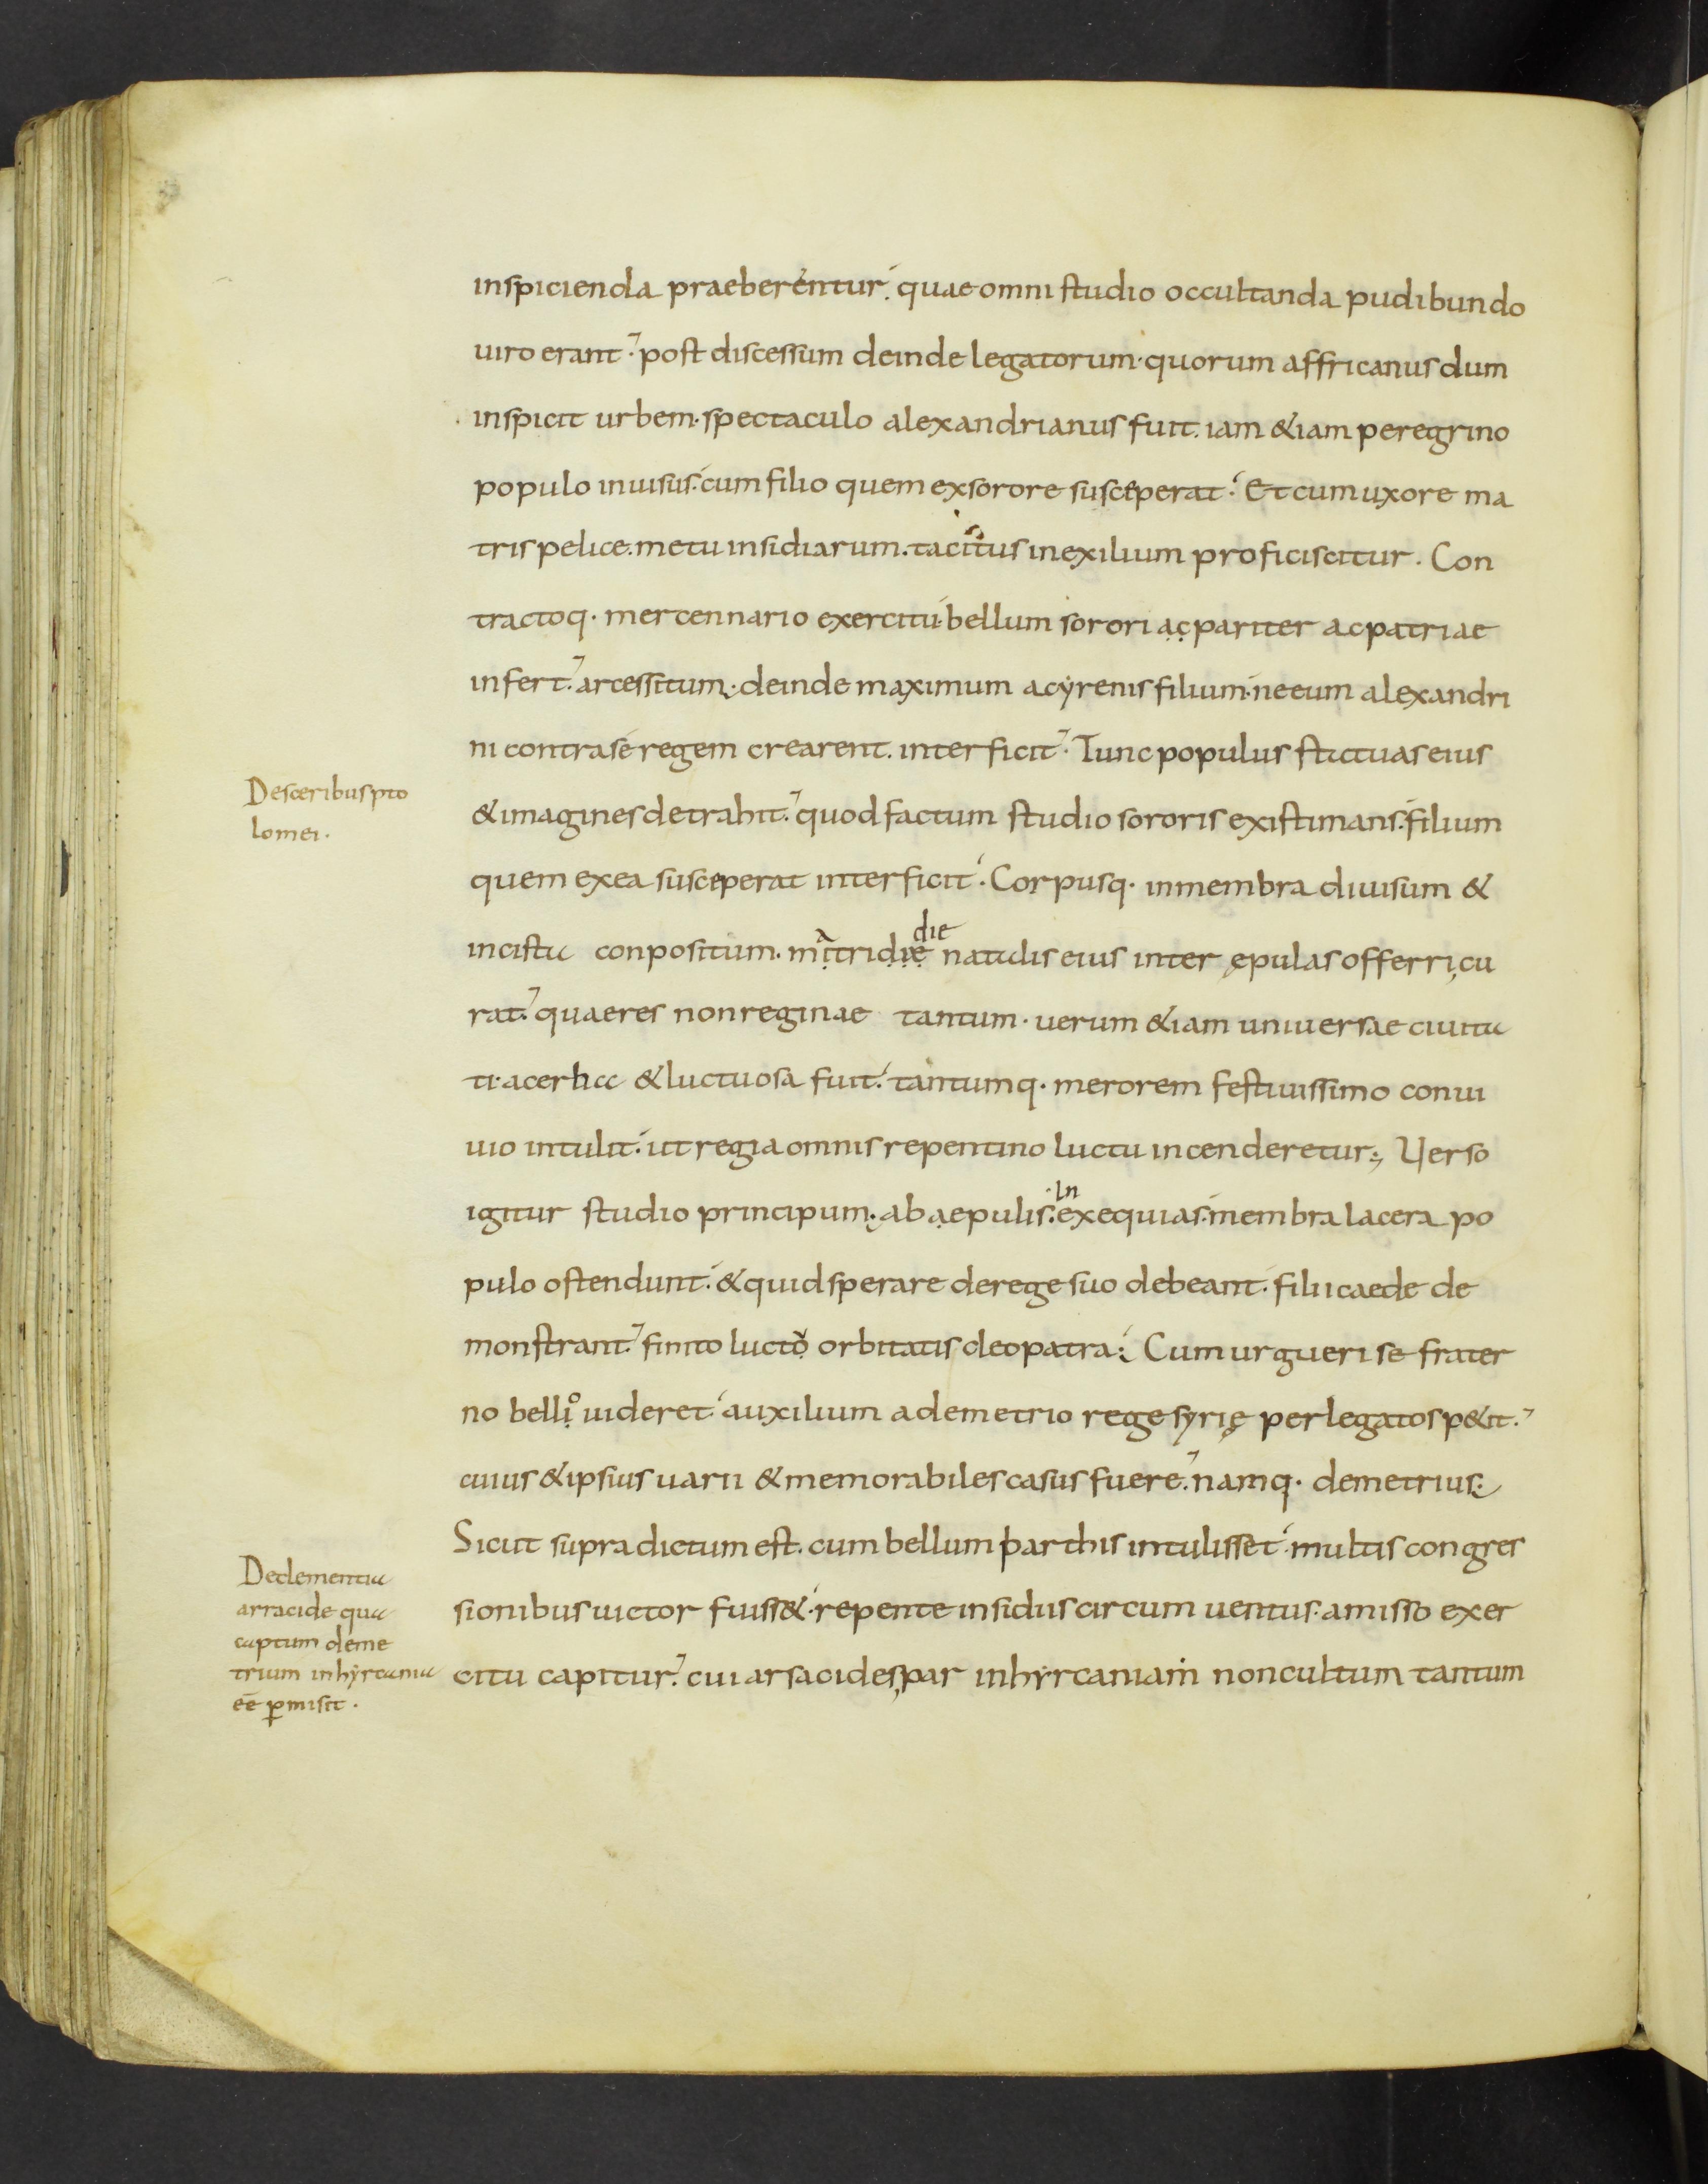 inspicienda praeberentur. quae omni studio occultanda pudibundo
uiro erant. post discessum deinde legatorum. quorum affricanus dum
inspicit urbem. spectaculo alexandrianus fuit. iam &iam peregrino
populo inuisus. cum filio quem ex sorore susceperat. Et cum uxore ma
tris pelice. metu insidiarum. tacitus in exilium proficiscitur. Con
tractoq. mercennario exercitu. bellum sorori ac pariter ac patriae
infert. arcessitum. deinde maximum a cyrenis filium. ne eum alexandri
ni contra se regem crearent. interficit. Tunc populus statuas eius
Desceribus pto
lomei.
& imagines detrahit. quod factum studio sororis existimans. filium
quem ex ea susceperat interficit. Corpusq. in membra diuisum &
in cista conpositum. mitridie die natalis eius inter epulas offerri cu
rat. quae res non reginae tantum. uerum &iam uniuersae ciuita
ti. acerba & luctuosa fuit. tantumq. merorem festiuissimo conui
uio intulit. ut regia omnis repentino luctu incenderetur; Verso
igitur studio principum. ab aepulis. In exequias. membra lacera po
pulo ostendunt. & quid sperare de rege suo debeant. filii caede de
monstrant. finito lucto orbitatis cleopatra. Cum urgueri se frater
no bellio uideret. auxilium a demetrio rege syrię per legatos p&it.
cuius & ipsius uarii & memorabiles casus fuere. namq. demetrius.
Sicut supra dictum est. cum bellum parthis intulisset. multis congres
Declementia
arracide qua
captum deme
trium in hyrcania
eē ꝑmisit.
sionibus uictor fuiss&. repente insidiis circum uentus. amisso exer
citu capitur. cui arsacides, par in hyrcaniam non cultum tantum